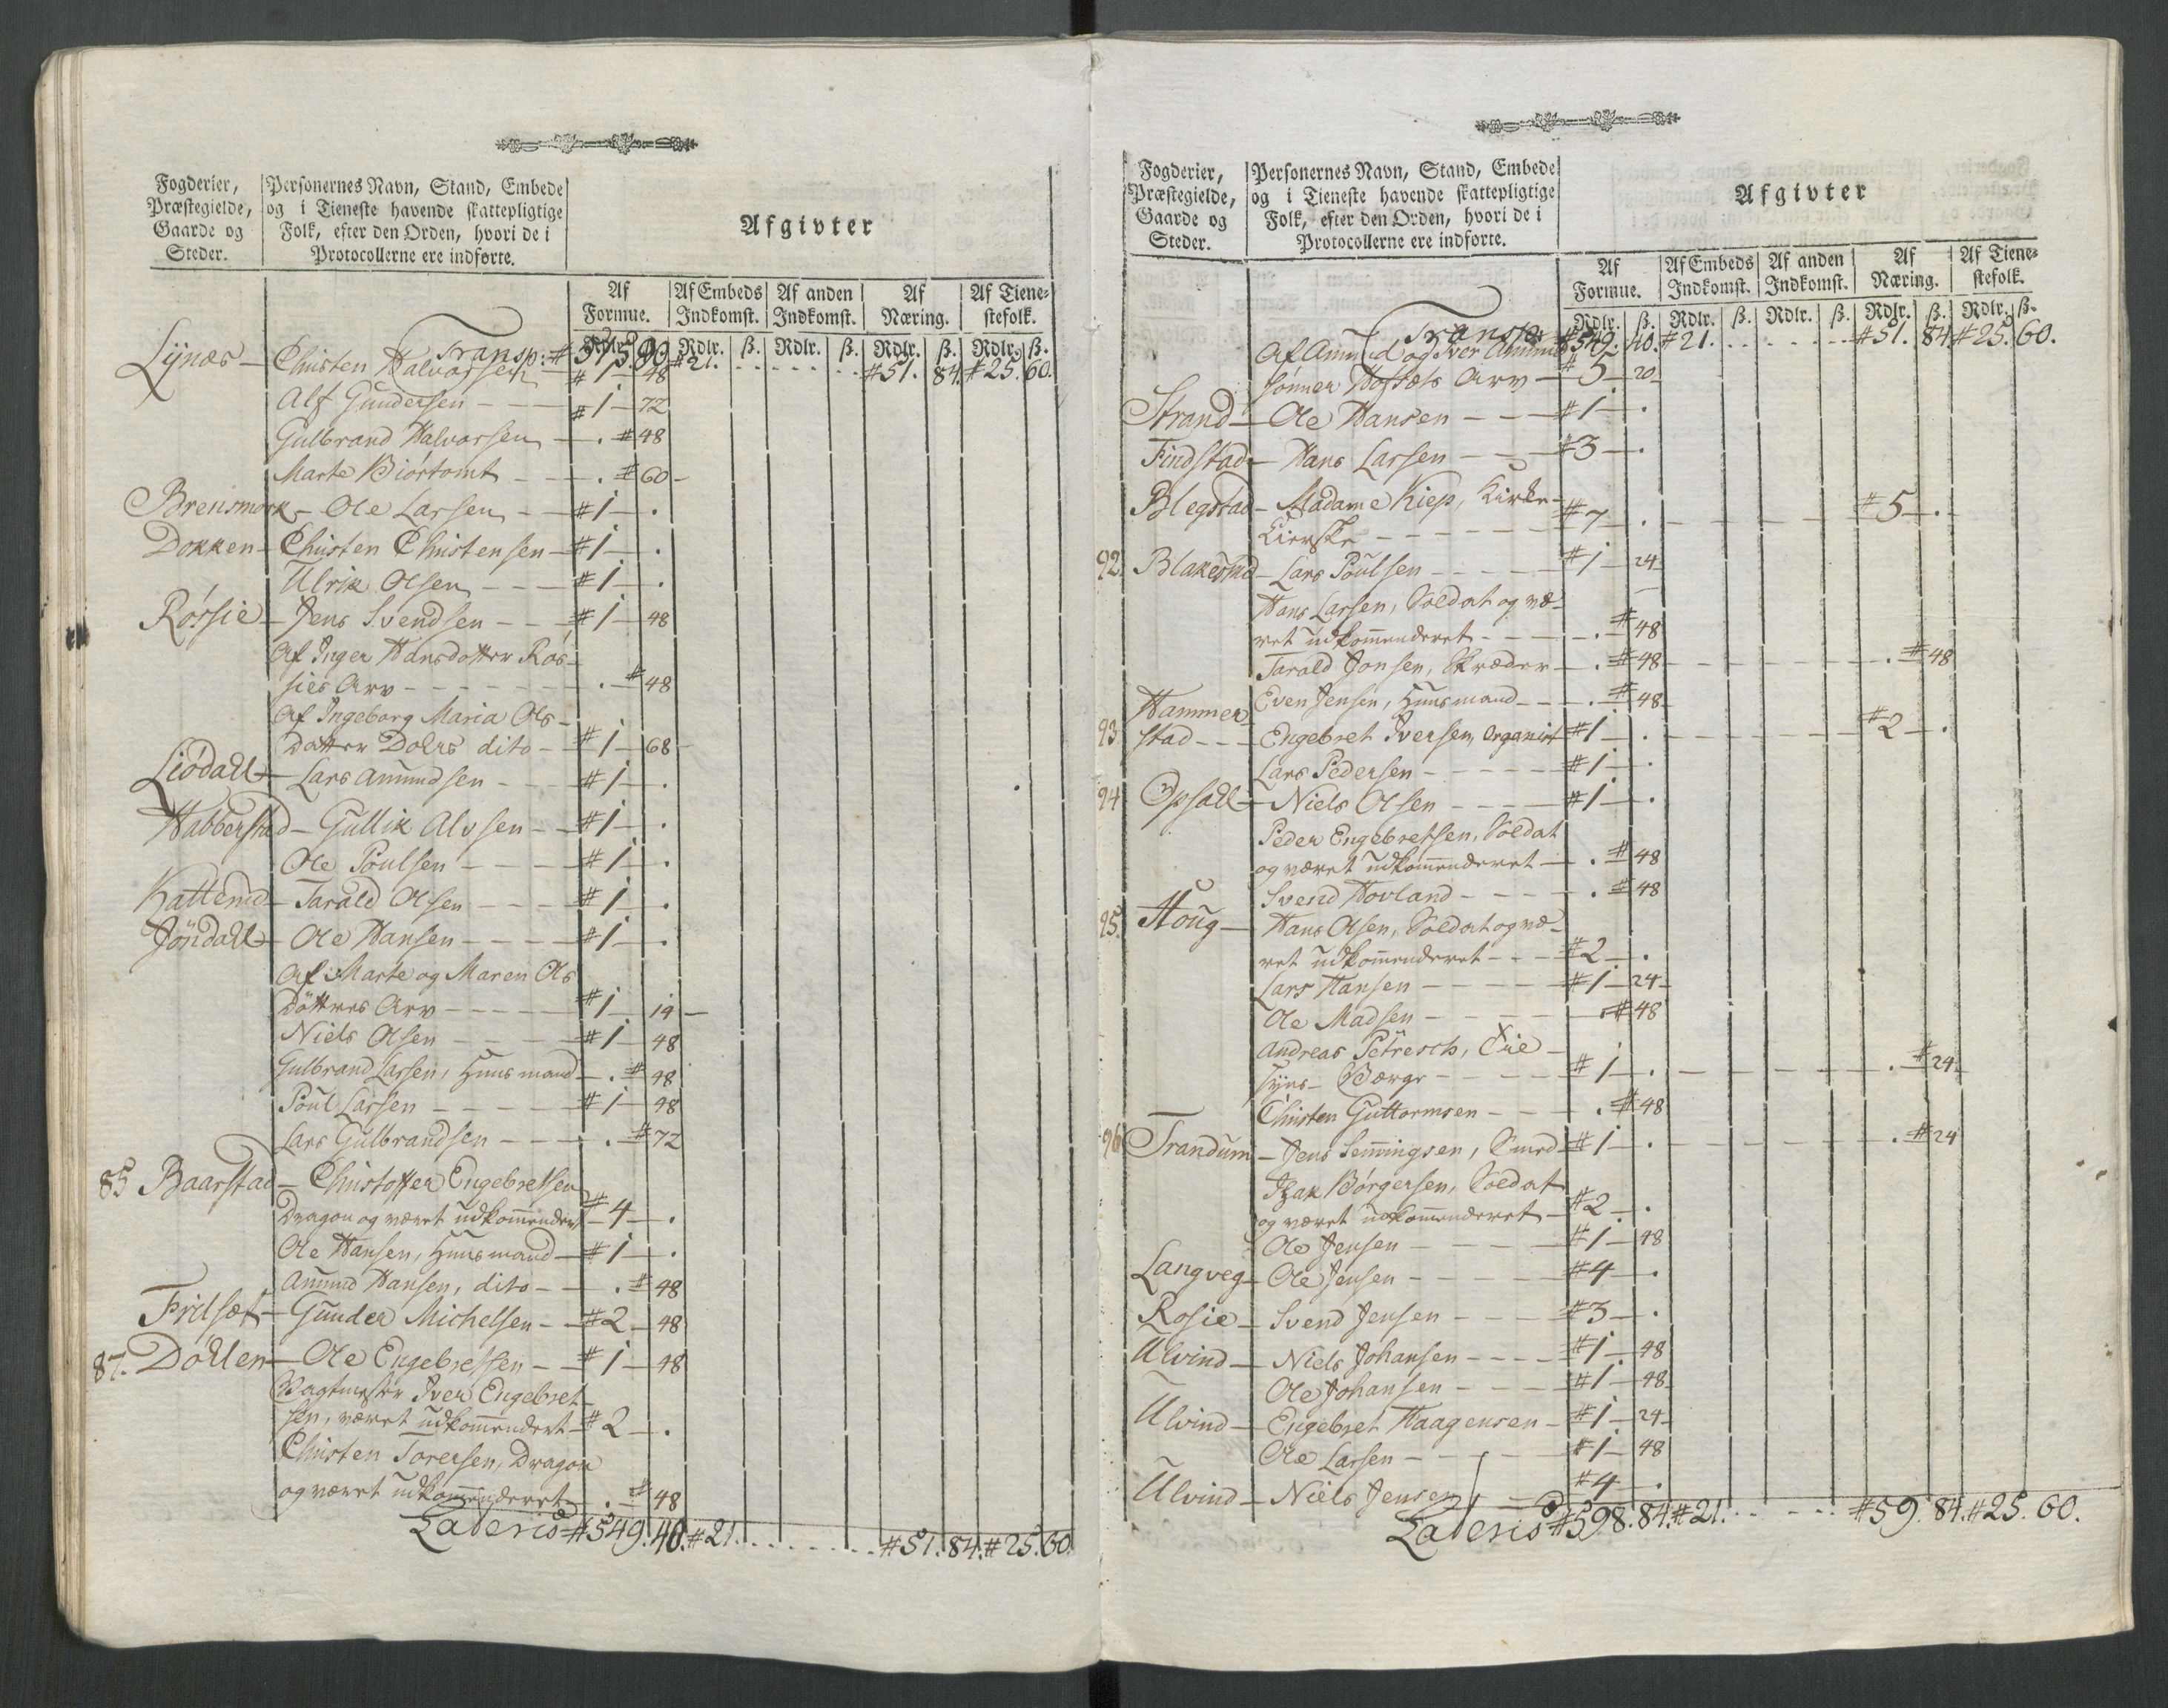 Fogderier,
Præstegielde,
Gaarde og
Steder.
Personernes Navn, Stand, Embede
og i Tieneste havende skattepligtige
Folk, efter den Orden, hvori de i
Protocollerne ere indførte.
Afgivter
Af Formue. Af Embeds Indkomst. Af anden Indkomst. Af Næring. Af Tienestefolk.
Rdlr. ß. Rdlr. ß. Rdlr. ß. Rdlr. ß. Rdlr. ß.
Transp: #21. #51. 84. #25. 60.
Lÿnæs - Christen Halvorsen - #1 - 48
Alf Gundersen - #1 - 72
Gulbrand Halvorsen - . #48
Marte Biørtomt - . #60
Brensmork - Ole Larsen - #1 - .
Dokken - Christen Christensen - #1 - .
Ulrik Olsen - #1 - .
Rørsie - Jens Svendsen - #1 - 48
Af Inger Hansdotter Rør-
sies Arv - . #48
Af Ingeborg Maria Ols-
datter Dolers dito - #1 - 68
Liødall - Lars Amundsen - #1 - .
Habberstad - Gullik Alvsen - #1 - .
Ole Poulsen - #1 - .
Kattenud - Tarald Olsen - #1 - .
Jøndall - Ole Hansen - #1 - .
Af Marte og Maren Ols
døttres Arv - #1 - 14
Niels Olsen - #1 - 48
Gulbrand Larsen, Huusmand - . #48
Poul Larsen - #1 - 48
Lars Gulbrandsen - . #72
85 Baarstad - Christoffer Engebretsen
Dragon og været udkom̄enderet - #4 - .
Ole Hansen, Huusmand - #1 - .
Amund Hansen, dito - . #48
Frilset - Gunder Michelsen - #2 - 48
87. Døllen - Ole Engebretsen - #1 - 48
Vagtmester Iver Engebret-
sen, været udkom̄enderet - #2 - .
Christen Toresen, Dragon
og været udkom̄enderet - . #48
Lateris #549. 40. #21. #51. 84. #25. 60.
Fogderier,
Præstegielde,
Gaarde og
Steder.
Personernes Navn, Stand, Embede
og i Tieneste havende skattepligtige
Folk, efter den Orden, hvori de i
Protocollerne ere indførte.
Afgivter
Af Formue. Af Embeds Indkomst. Af anden Indkomst. Af Næring. Af Tienestefolk.
Rdlr. ß. Rdlr. ß. Rdlr. ß. Rdlr. ß. Rdlr. ß.
Transp: #549. 40. #21. #51. 84. #25. 60.
Af Amund og Iver Amund
sønner Hofsæts Arv - #5 - 20
Strand - Ole Hansen - #1 - .
Findstad - Hans Larsen - #3 - .
Blegstad - Madame Kiep, Kirke-
Eierske - #7 - . #5 - .
92. Blakerud - Lars Poulsen - #1 - 24
Hans Larsen, Soldat og væ-
ret udkom̄enderet - . #48
Tarald Jonsen, Skræder - . #48 - . #48
Even Jensen, Huusmand - . #48
93. Hammer-
stad - Engebret Iversen, Organist #1 - . #2 - .
Lars Pedersen - #1 - .
94 Opsall - Niels Olsen - #1 - .
Peder Engebretsen, Soldat
og været udkom̄enderet - . #48
Svend Hovland - . #48
95. Houg - Hans Olsen, Soldat og væ-
ret udkom̄enderet - #2 - .
Lars Hansen - #1 - 24
Ole Madsen - . #48
Andreas
- #1 - . . #24
Christen Guttormsen - . #48
96 Trandum - Jens Sem̄ingsen, Smed - #1 - . . #24
Isak Børgersen, Soldat
og været udkom̄enderet - #2 - .
Ole Jensen - #1 - 48
Langveg - Ole Jensen - #4 - .
Rosie - Svend Jensen - #3 - .
Ulvind - Niels Johansen - #1 - 48
Ole Johansen - #1 - 48
Ulvind - Engebret Haagensen - #1 - 24
Ole Larsen - #1 - 48
Ulvind - Niels Jensen - #4 - .
Lateris #598. 84. #21. #59. 84. #25. 60.